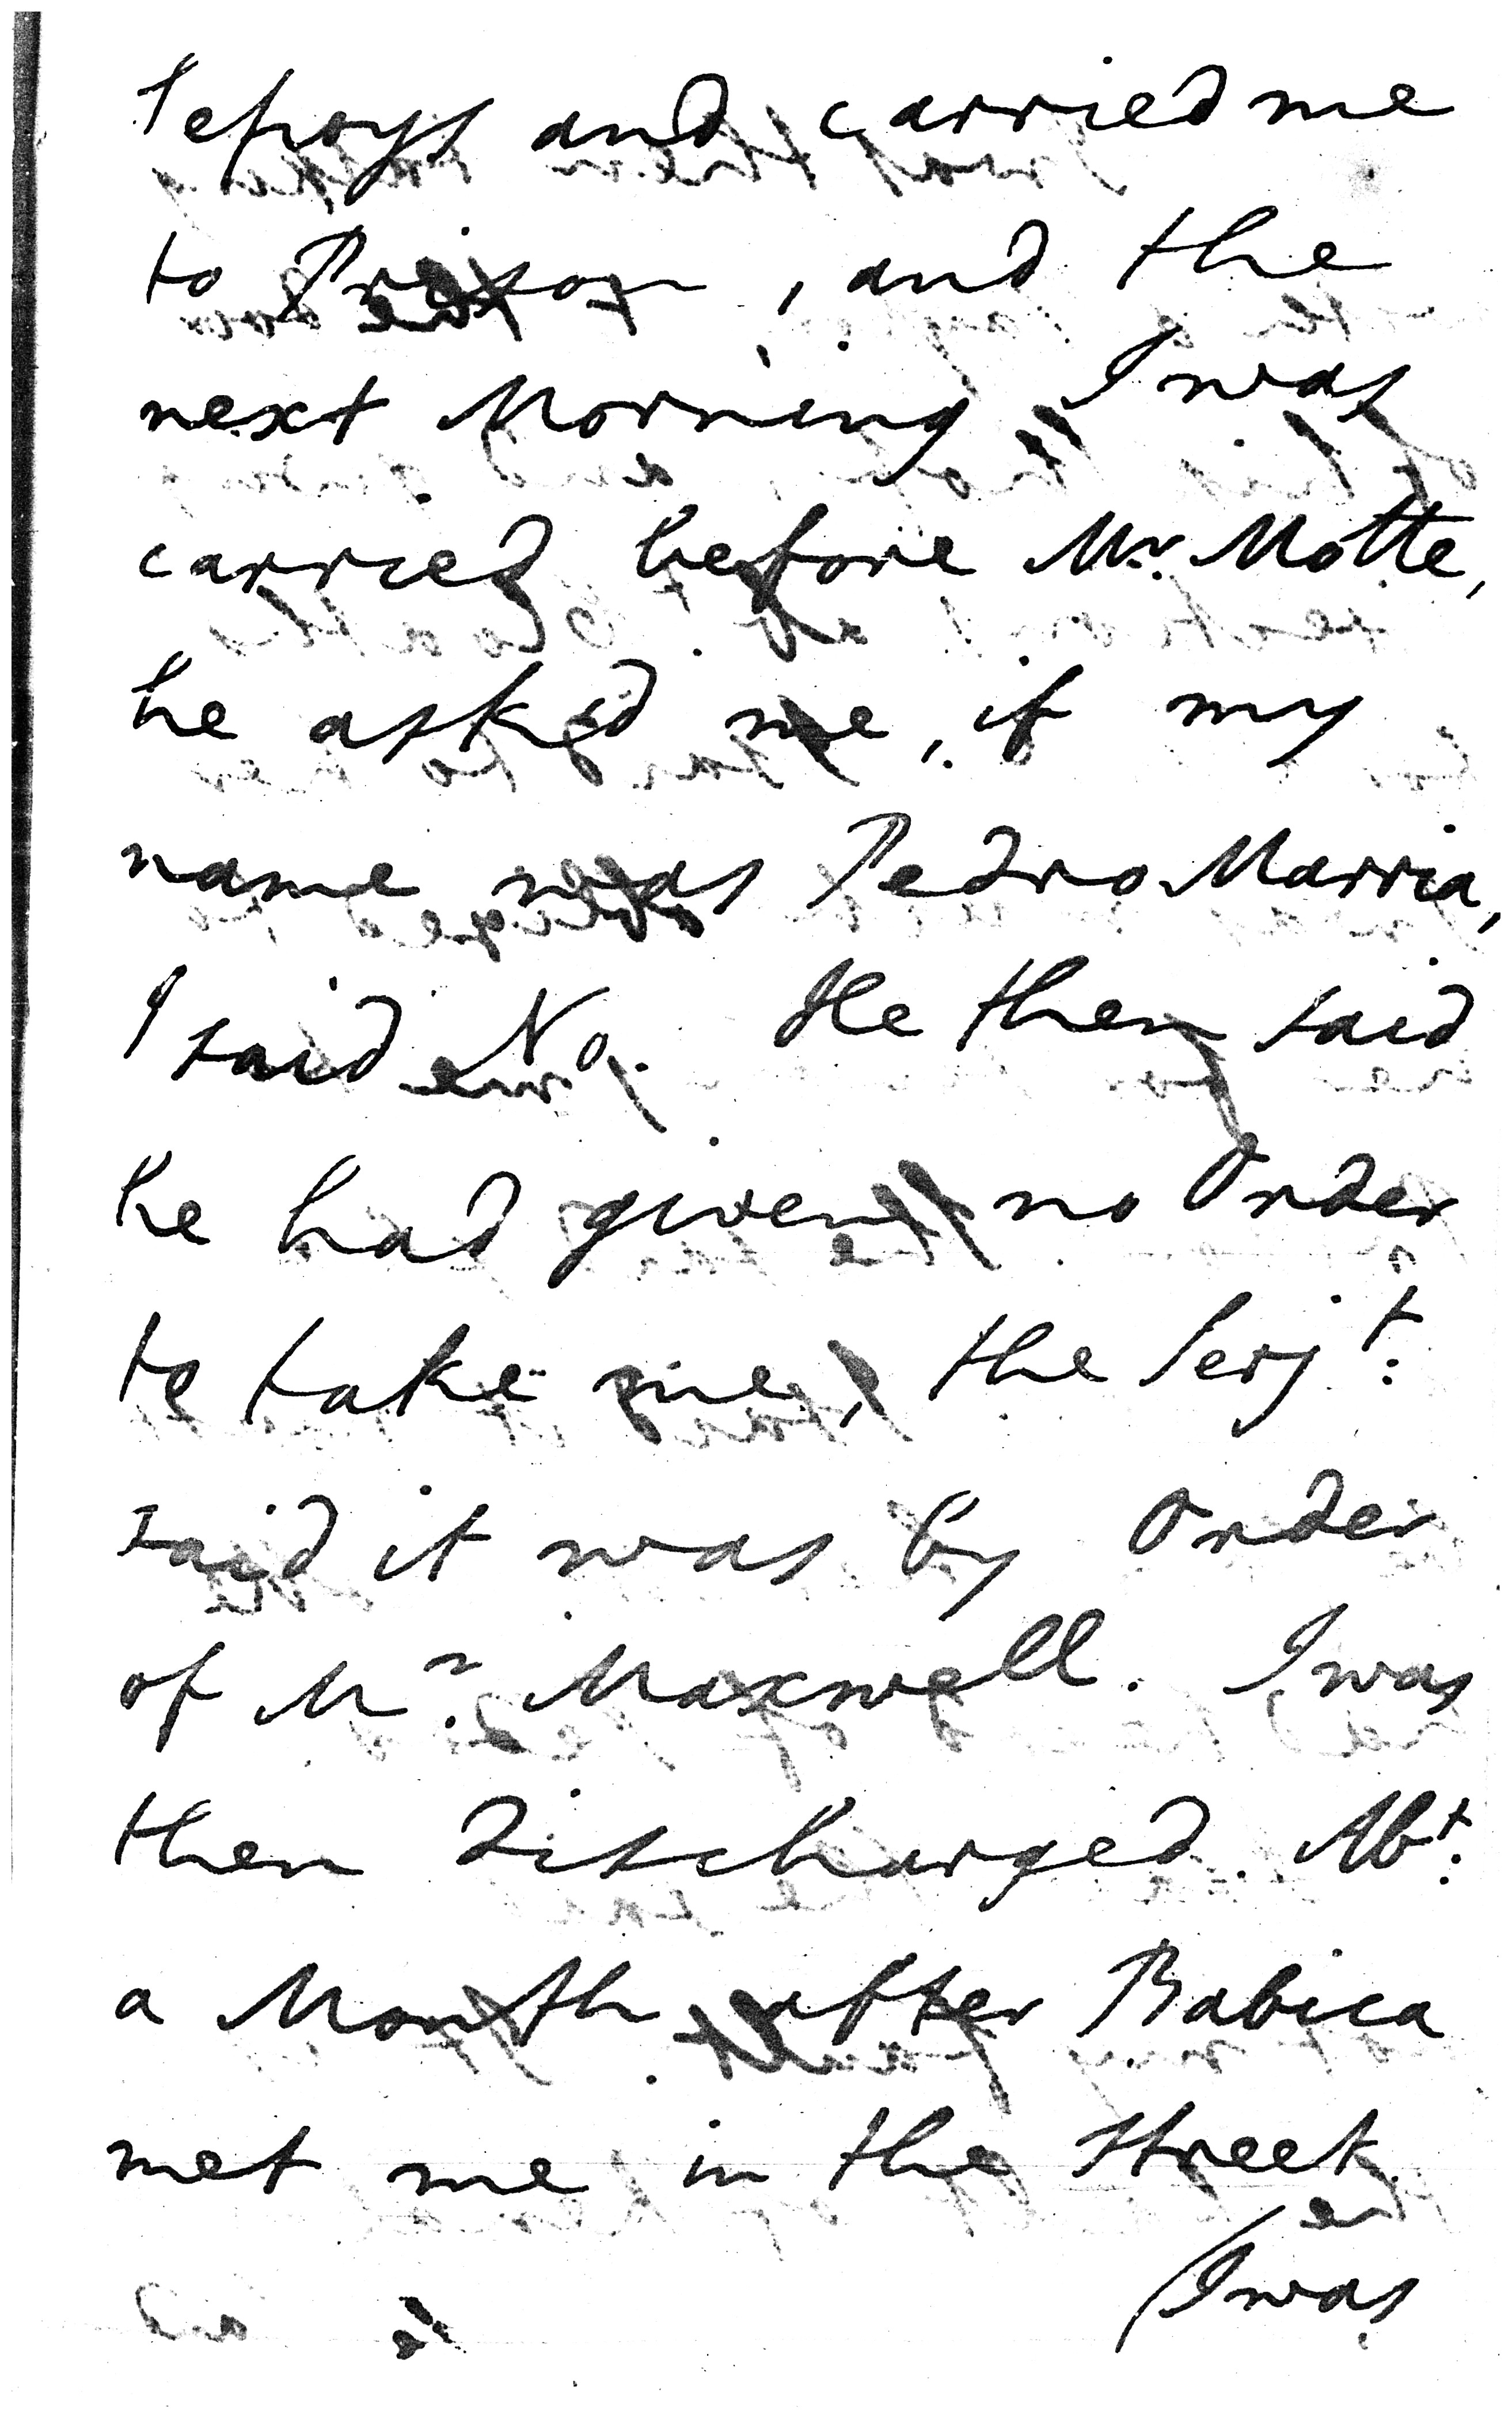 Sepoys and carried me
to Prison, and the
next Morning I was
carried before Mr. Motte,
he asked me, if my
name was Pedro Marria,
I said No. He then said
he had given no Order
to take me, the Serjt:
said it was by Order
of Mr. Maxwell. I was
then discharged. Abt:
a Month after Babica
met me in the Street
I was